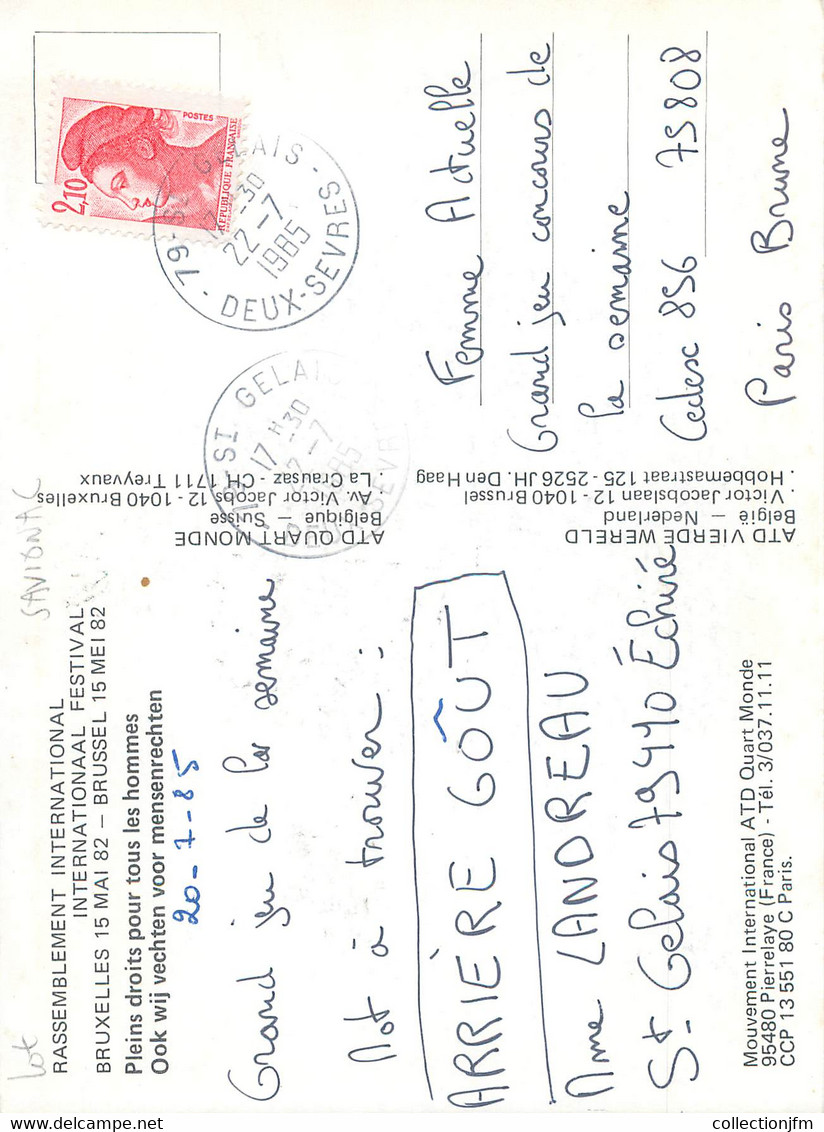 lot
SAVIGNAC
RASSEMBLEMENT INTERNATIONAL
INTERNATIONAAL FESTIVAL
BRUXELLES 15 MAI 82 – BRUSSEL 15 MEI 82
Pleins droits pour tous les hommes
Ook wij vechten voor mensenrechten
20-7-85
Grand jeu de la semaine
Mot à trouver :
ARRIÈRE GOÛT
Mme LANDREAU
St Gelais 79410 Échiré
Mouvement International ATD Quart Monde
95480 Pierrelaye (France) - Tél. 3/037.11.11
CCP 13 551 80 C Paris.
ATD QUART MONDE
Belgique – Suisse
. Av. Victor Jacobs 12 - 1040 Bruxelles
. La Crausaz - CH 1711 Treyvaux
ATD VIERDE WERELD
België – Nederland
. Victor Jacobslaan 12 - 1040 Brussel
. Hobbemastraat 125 - 2526 JH. Den Haag
POSTES
2,10
REPUBLIQUE FRANÇAISE
79-St GELAIS -
17 H-30
22-7
1985
- DEUX-SEVRES
79-St GELAIS
17 H-30
22-7
1985
DEUX-SEVRES
Femme Actuelle
Grand jeu concours de
la semaine
Cedex 856 75808
Paris Brune
© collectionjfm